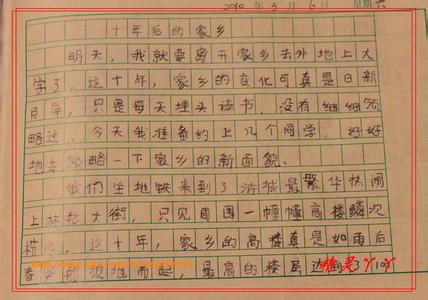 2010年3月6日 星期六
十年后的家乡
明天，我就要离开家乡去外地上大
学了。这十年，家乡的变化可真是日新
月异，只是每天埋头读书，没有细细领
略过。今天我准备约上几个同学，好好
地去领略一下家乡的新面貌。
我们坐地铁来到了 城最繁华热闹
上 大街，只见周围一幢幢高楼鳞次
栉比。这十年，家乡的高楼真是如雨后
春笋般拔地而起，最高的楼层达到了